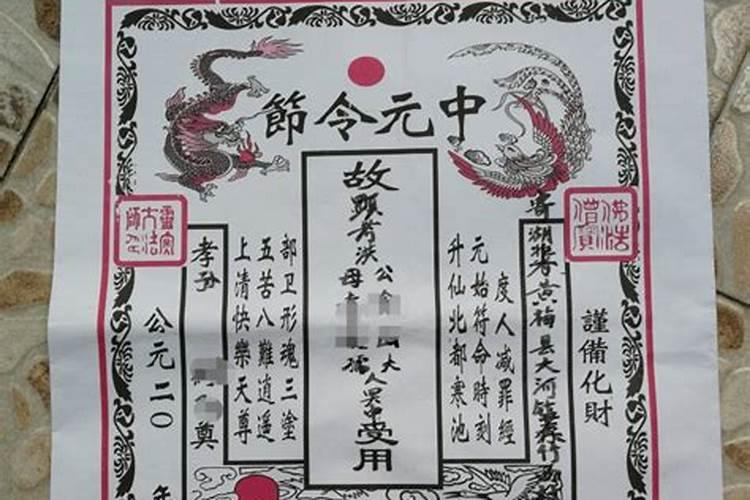 中元令節
佛法
僧寶
謹備化財
寄湖北黄梅县大河镇
度人减罪經
元始符命時刻
升仙北都寒池
故顯考洪公大人
母孺
受用
部卫形魂三塗
五苦八難逍遥
上清快樂天尊
孝孙
奠
靈寶
大法
師印
公元二〇年